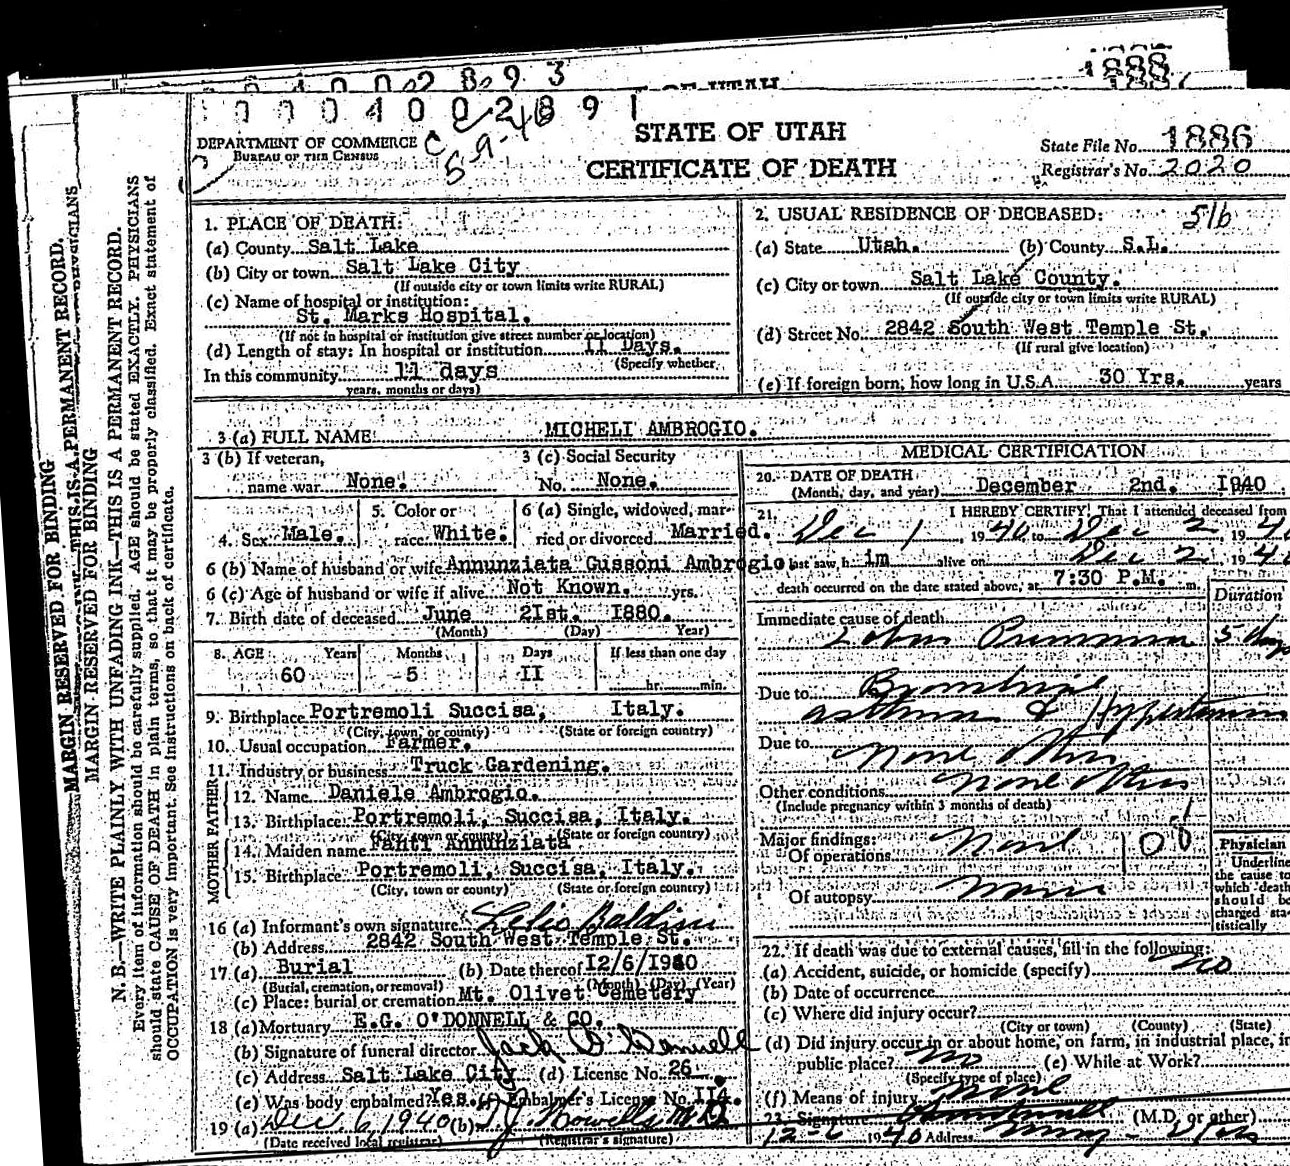 0 0 0 4 0 0 2 8 9 3
OF UTAH
1888
0 0 0 4 0 0 2 8 9 1
DEPARTMENT OF COMMERCE
BUREAU OF THE CENSUS
C 5-9-46
STATE OF UTAH
CERTIFICATE OF DEATH
State File No. 1886
Registrar's No. 2020
MARGIN RESERVED FOR BINDING
THIS IS A PERMANENT RECORD.
MARGIN RESERVED FOR BINDING
N. B.—WRITE PLAINLY WITH UNFADING INK—THIS IS A PERMANENT RECORD.
Every item of information should be carefully supplied. AGE should be stated EXACTLY. PHYSICIANS
should state CAUSE OF DEATH in plain terms, so that it may be properly classified. Exact statement of
OCCUPATION is very important. See instructions on back of certificate.
1. PLACE OF DEATH:
(a) County Salt Lake
(b) City or town Salt Lake City
(If outside city or town limits write RURAL)
(c) Name of hospital or institution:
St. Marks Hospital.
(If not in hospital or institution give street number or location)
(d) Length of stay: In hospital or institution 11 Days.
(Specify whether
In this community 11 days
years, months or days)
2. USUAL RESIDENCE OF DECEASED: 516
(a) State Utah. (b) County S.L.
(c) City or town Salt Lake County.
(If outside city or town limits write RURAL)
(d) Street No. 2842 South West Temple St.
(If rural give location)
(e) If foreign born, how long in U.S.A. 30 Yrs. years
3 (a) FULL NAME MICHELI AMBROGIO.
3 (b) If veteran, name war None.
3 (c) Social Security No. None.
4. Sex Male.
5. Color or race White.
6 (a) Single, widowed, married or divorced Married.
6 (b) Name of husband or wife Annunziata Gussoni Ambrogio
6 (c) Age of husband or wife if alive Not Known. yrs.
7. Birth date of deceased June 21st. 1880.
(Month) (Day) Year)
8. AGE Years Months Days If less than one day
60 5 11 hr. min.
9. Birthplace Portremoli Succisa, Italy.
(City, town, or county) (State or foreign country)
10. Usual occupation Farmer.
11. Industry or business Truck Gardening.
FATHER
12. Name Daniele Ambrogio.
13. Birthplace Portremoli, Succisa, Italy.
(City, town or county) (State or foreign country)
MOTHER
14. Maiden name Fanti Annunziata
15. Birthplace Portremoli, Succisa, Italy.
(City, town or county) (State or foreign country)
16 (a) Informant's own signature Lelio Baldini
(b) Address 2842 South West Temple St.
17 (a) Burial (b) Date thereof 12/6/1940
(Burial, cremation, or removal) (Month) (Day) (Year)
(c) Place: burial or cremation Mt. Olivet Cemetery
18 (a) Mortuary E.G. O'DONNELL & CO.
(b) Signature of funeral director Jack O'Donnell
(c) Address Salt Lake City (d) License No. 26
(e) Was body embalmed? Yes. (f) Embalmer's License No. 114.
19 (a) Dec 6, 1940 (b) T.J. Howells M.D.
(Date received local registrar) (Registrar's signature)
MEDICAL CERTIFICATION
20. DATE OF DEATH
(Month, day, and year) December 2nd. 1940
21. I HEREBY CERTIFY: That I attended deceased from
Dec 1, 1940 to Dec 2, 1940
last saw h im alive on Dec 2, 1940
death occurred on the date stated above, at 7:30 P.M. m.
Duration
Immediate cause of death
Lobar Pneumonia 5 days
Due to Bronchial
asthma & Hypertension
Due to None Other
Other conditions None Other
(Include pregnancy within 3 months of death)
Major findings:
Of operations None
Of autopsy None
Physician
Underline
the cause to
which death
should be
charged sta-
tistically
22. If death was due to external causes, fill in the following:
(a) Accident, suicide, or homicide (specify) no
(b) Date of occurrence
(c) Where did injury occur?
(City or town) (County) (State)
(d) Did injury occur in or about home, on farm, in industrial place, in
public place? no (e) While at Work?
(Specify type of place)
(f) Means of injury none
23. Signature (M.D. or other)
12-6 1940 Address Murray - Utah